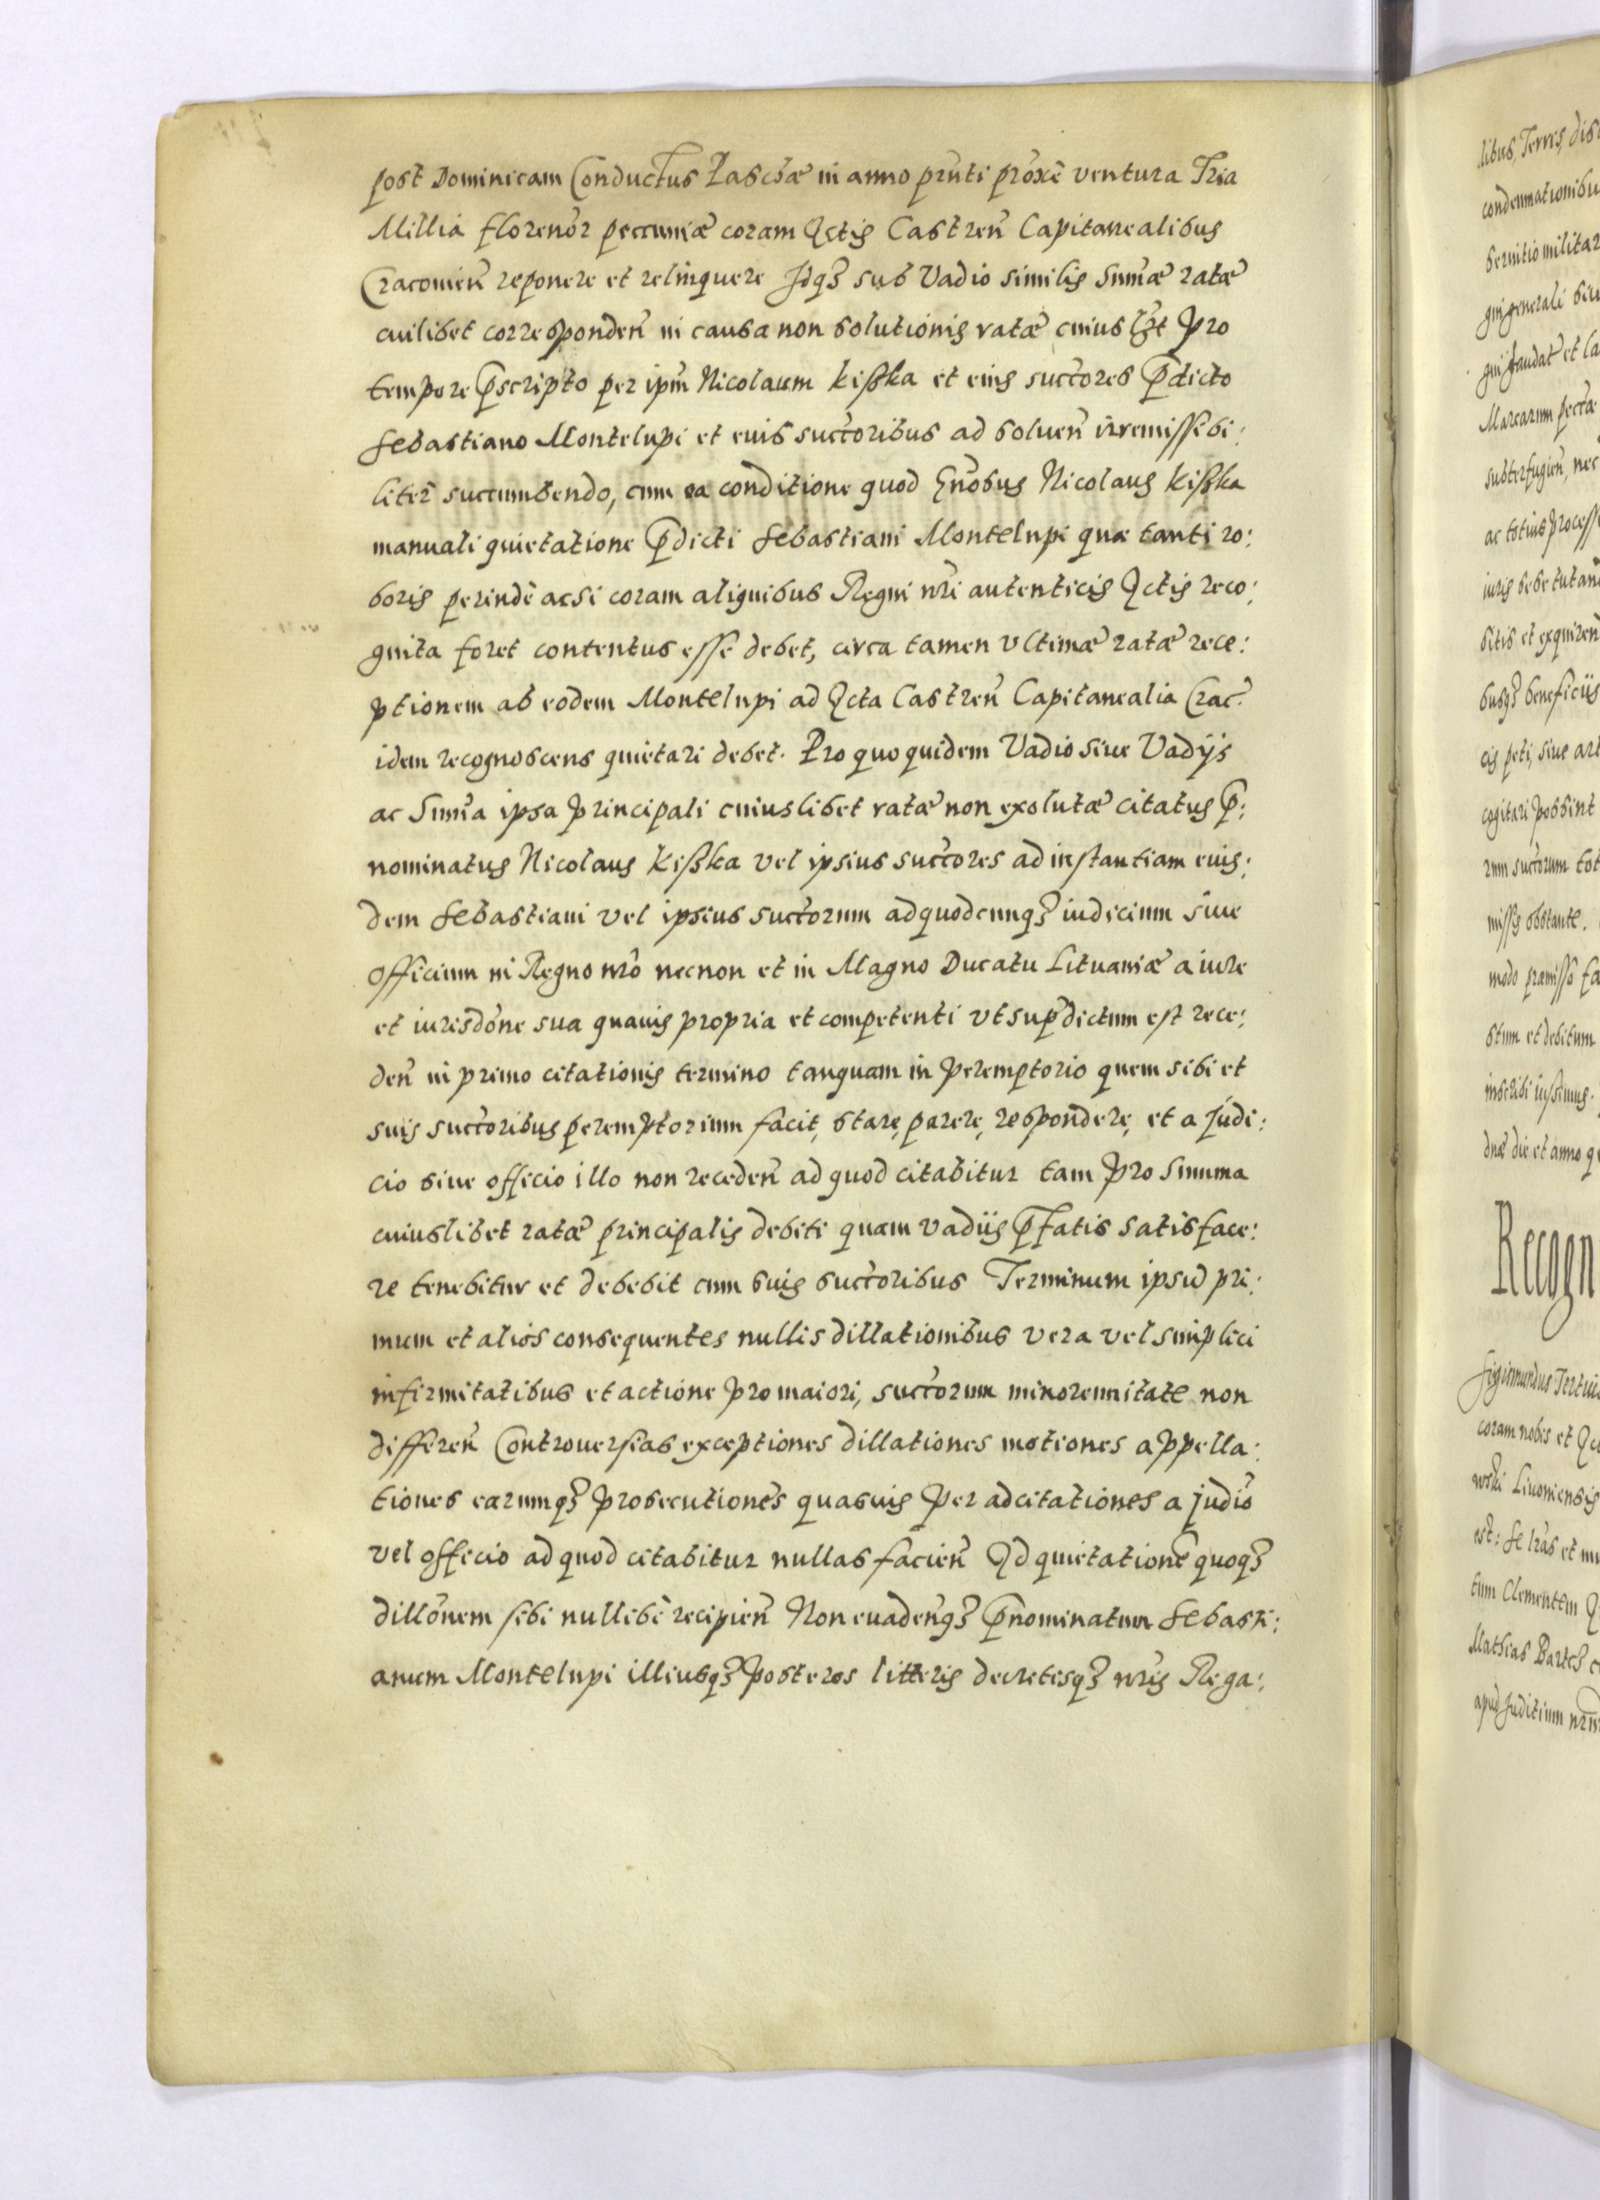 post Dominicam Conductus Paschæ in anno prñti proxẽ ventura Tria
Millia florenor̃ pecuniæ coram Actis Castreñ Capitanealibus
Cracovieñ reponere et relinquere Idqꝫ sub Vadio similis Sum̃æ ratæ
cuilibet correspondeñ in causa non solutionis ratæ cuiuslꝫt pro
tempore p̃scripto per ipm̃ Nicolaum Kißka et eius succ̃ores p̃dicto
Sebastiano Montelupi et euis succ̃oribus ad soluen̄ irremissibi:
liter succumbendo, cum ea conditione quod Gñosus Nicolaus Kißka
manuali quietatione p̃dicti Sebastiani Montelupi quæ tanti ro:
boris perinde acsi coram aliquibus Regni nr̃i autenticis Actis reco:
gnita foret contentus esse debet, circa tamen vltimæ ratæ rece:
ptionem ab eodem Montelupi ad Acta Castreñ Capitanealia Crac̃
idem recognoscens quietari debet. Pro quo quidem Vadio siue Vadijs
ac Sum̃a ipsa principali cuiuslibet ratæ non exolutæ citatus p̃:
nominatus Nicolaus Kißka vel ipsius succ̃ores ad instantiam euis:
dem Sebastiani vel ipsius succ̃orum ad quodcunqꝫ iudicium siue
officium in Regno nr̃o necnon et in Magno Ducatu Lituaniæ a iure
et iurisdõne sua quauis propria et competenti vt sup̃dictum est rece:
deñ in primo citationis termino tanquam in peremptorio quem sibi et
suis succ̃oribus peremptorium facit, stare, parere, respondere, et a judi:
cio siue officio illo non recedeñ ad quod citabitur tam pro Summa
cuiuslibet ratæ principalis debiti quam vadiis p̃fatis satisface:
re tenebitur et debebit cum suis succ̃oribus Terminum ipsũ pri:
mum et alios consequentes nullis dillationibus vera vel simplici
infirmitatibus et actione pro maiori, succ̃orum minorennitate non
differeñ Controuersias exceptiones dillationes motiones appella:
tiones earumqꝫ prosecutiones quasuis per adcitationes a judĩo
vel officio ad quod citabitur nullas facieñ Ad quietationẽ quoqꝫ
dillõnem sibi nullibi recipieñ Non euadeñqꝫ p̃nominatum Sebasti:
anum Montelupi illiusqꝫ posteros litteris decretisqꝫ nr̃is Rega:
libus, Terris,
condemnationibu
seruitio militar
gni generali
gni gaudat et
Marcarum
subterfugieñ, nec
ac totius processs
iuris
sitis et exquireñ
busqꝫ beneficiis
eis peti, siue art
cogitari possint
rum succ̃orum tot
missis obstante.
modo præmisso fa
stum et debitum
inscribi iussimus.
die et anno q
Recogn
Sigismundus Tertius
coram nobis et
Liuoniensis
est: Se lr̃as et
tum Clementem
Mathias Bartch
apud Juditium